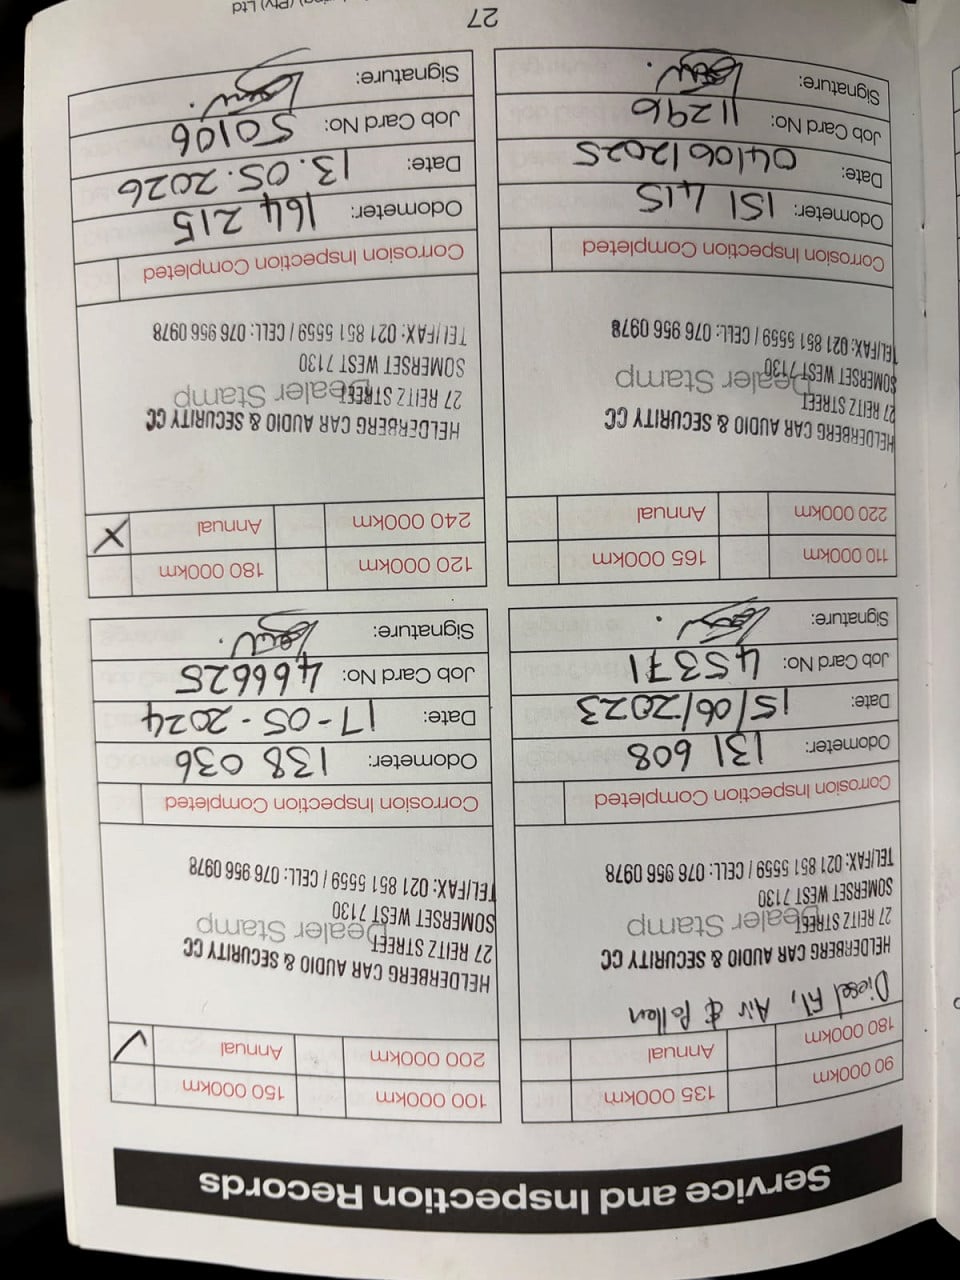 Service and Inspection Records
90 000km
135 000km
180 000km
Annual
Diesel Fil, Air & Pollen
HELDERBERG CAR AUDIO & SECURITY CC
27 REITZ STREET
Dealer Stamp
SOMERSET WEST 7130
TEL/FAX: 021 851 5559 / CELL: 076 956 0978
Corrosion Inspection Completed
Odometer: 131 608
Date: 15/06/2023
Job Card No: 45371
Signature:
100 000km
150 000km
200 000km
Annual
HELDERBERG CAR AUDIO & SECURITY CC
27 REITZ STREET
Dealer Stamp
SOMERSET WEST 7130
TEL/FAX: 021 851 5559 / CELL: 076 956 0978
Corrosion Inspection Completed
Odometer: 138 036
Date: 17-05-2024
Job Card No: 466625
Signature:
110 000km
165 000km
220 000km
Annual
HELDERBERG CAR AUDIO & SECURITY CC
27 REITZ STREET
Dealer Stamp
SOMERSET WEST 7130
TEL/FAX: 021 851 5559 / CELL: 076 956 0978
Corrosion Inspection Completed
Odometer: 151 415
Date: 04/06/2025
Job Card No: 11296
Signature:
120 000km
180 000km
240 000km
Annual
HELDERBERG CAR AUDIO & SECURITY CC
27 REITZ STREET
Dealer Stamp
SOMERSET WEST 7130
TEL/FAX: 021 851 5559 / CELL: 076 956 0978
Corrosion Inspection Completed
Odometer: 164 215
Date: 13.05.2026
Job Card No: 50106
Signature:
27
(Pty) Ltd